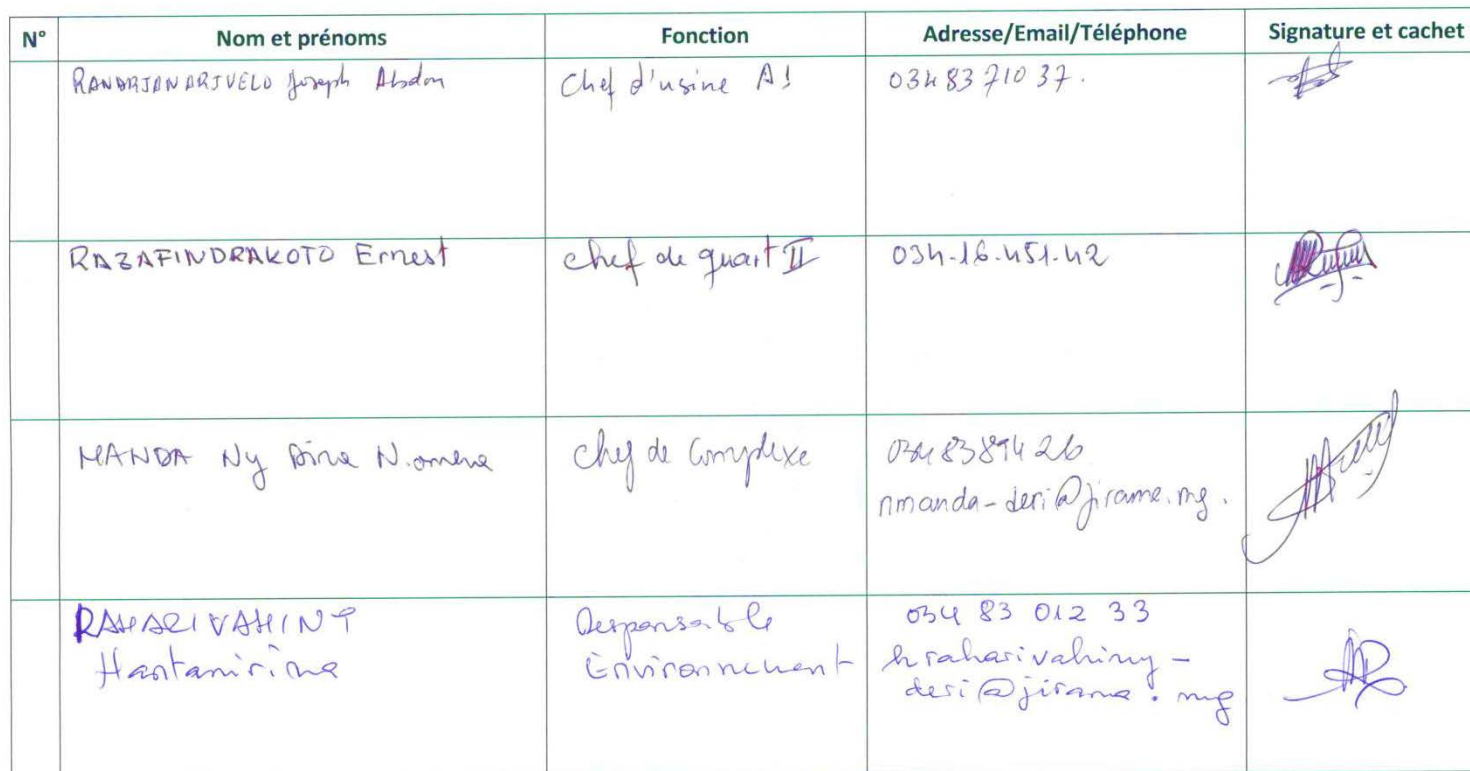 N° Nom et prénoms Fonction Adresse/Email/Téléphone Signature et cachet
RANARJANARJVELO Joseph Abdon Chef d'usine A1 034 83 710 37.
RAZAFINDRAKOTO Ernest chef de quart II 034-16-451-42
MANDA Ny Aina N.omena chef de Complexe 034 83 894 26
nmanda-deri@jirama.mg.
RAHARIVAHINY Responsable 034 83 012 33
Hantanirina Environnement hraharivahiny-
deri@jirama.mg